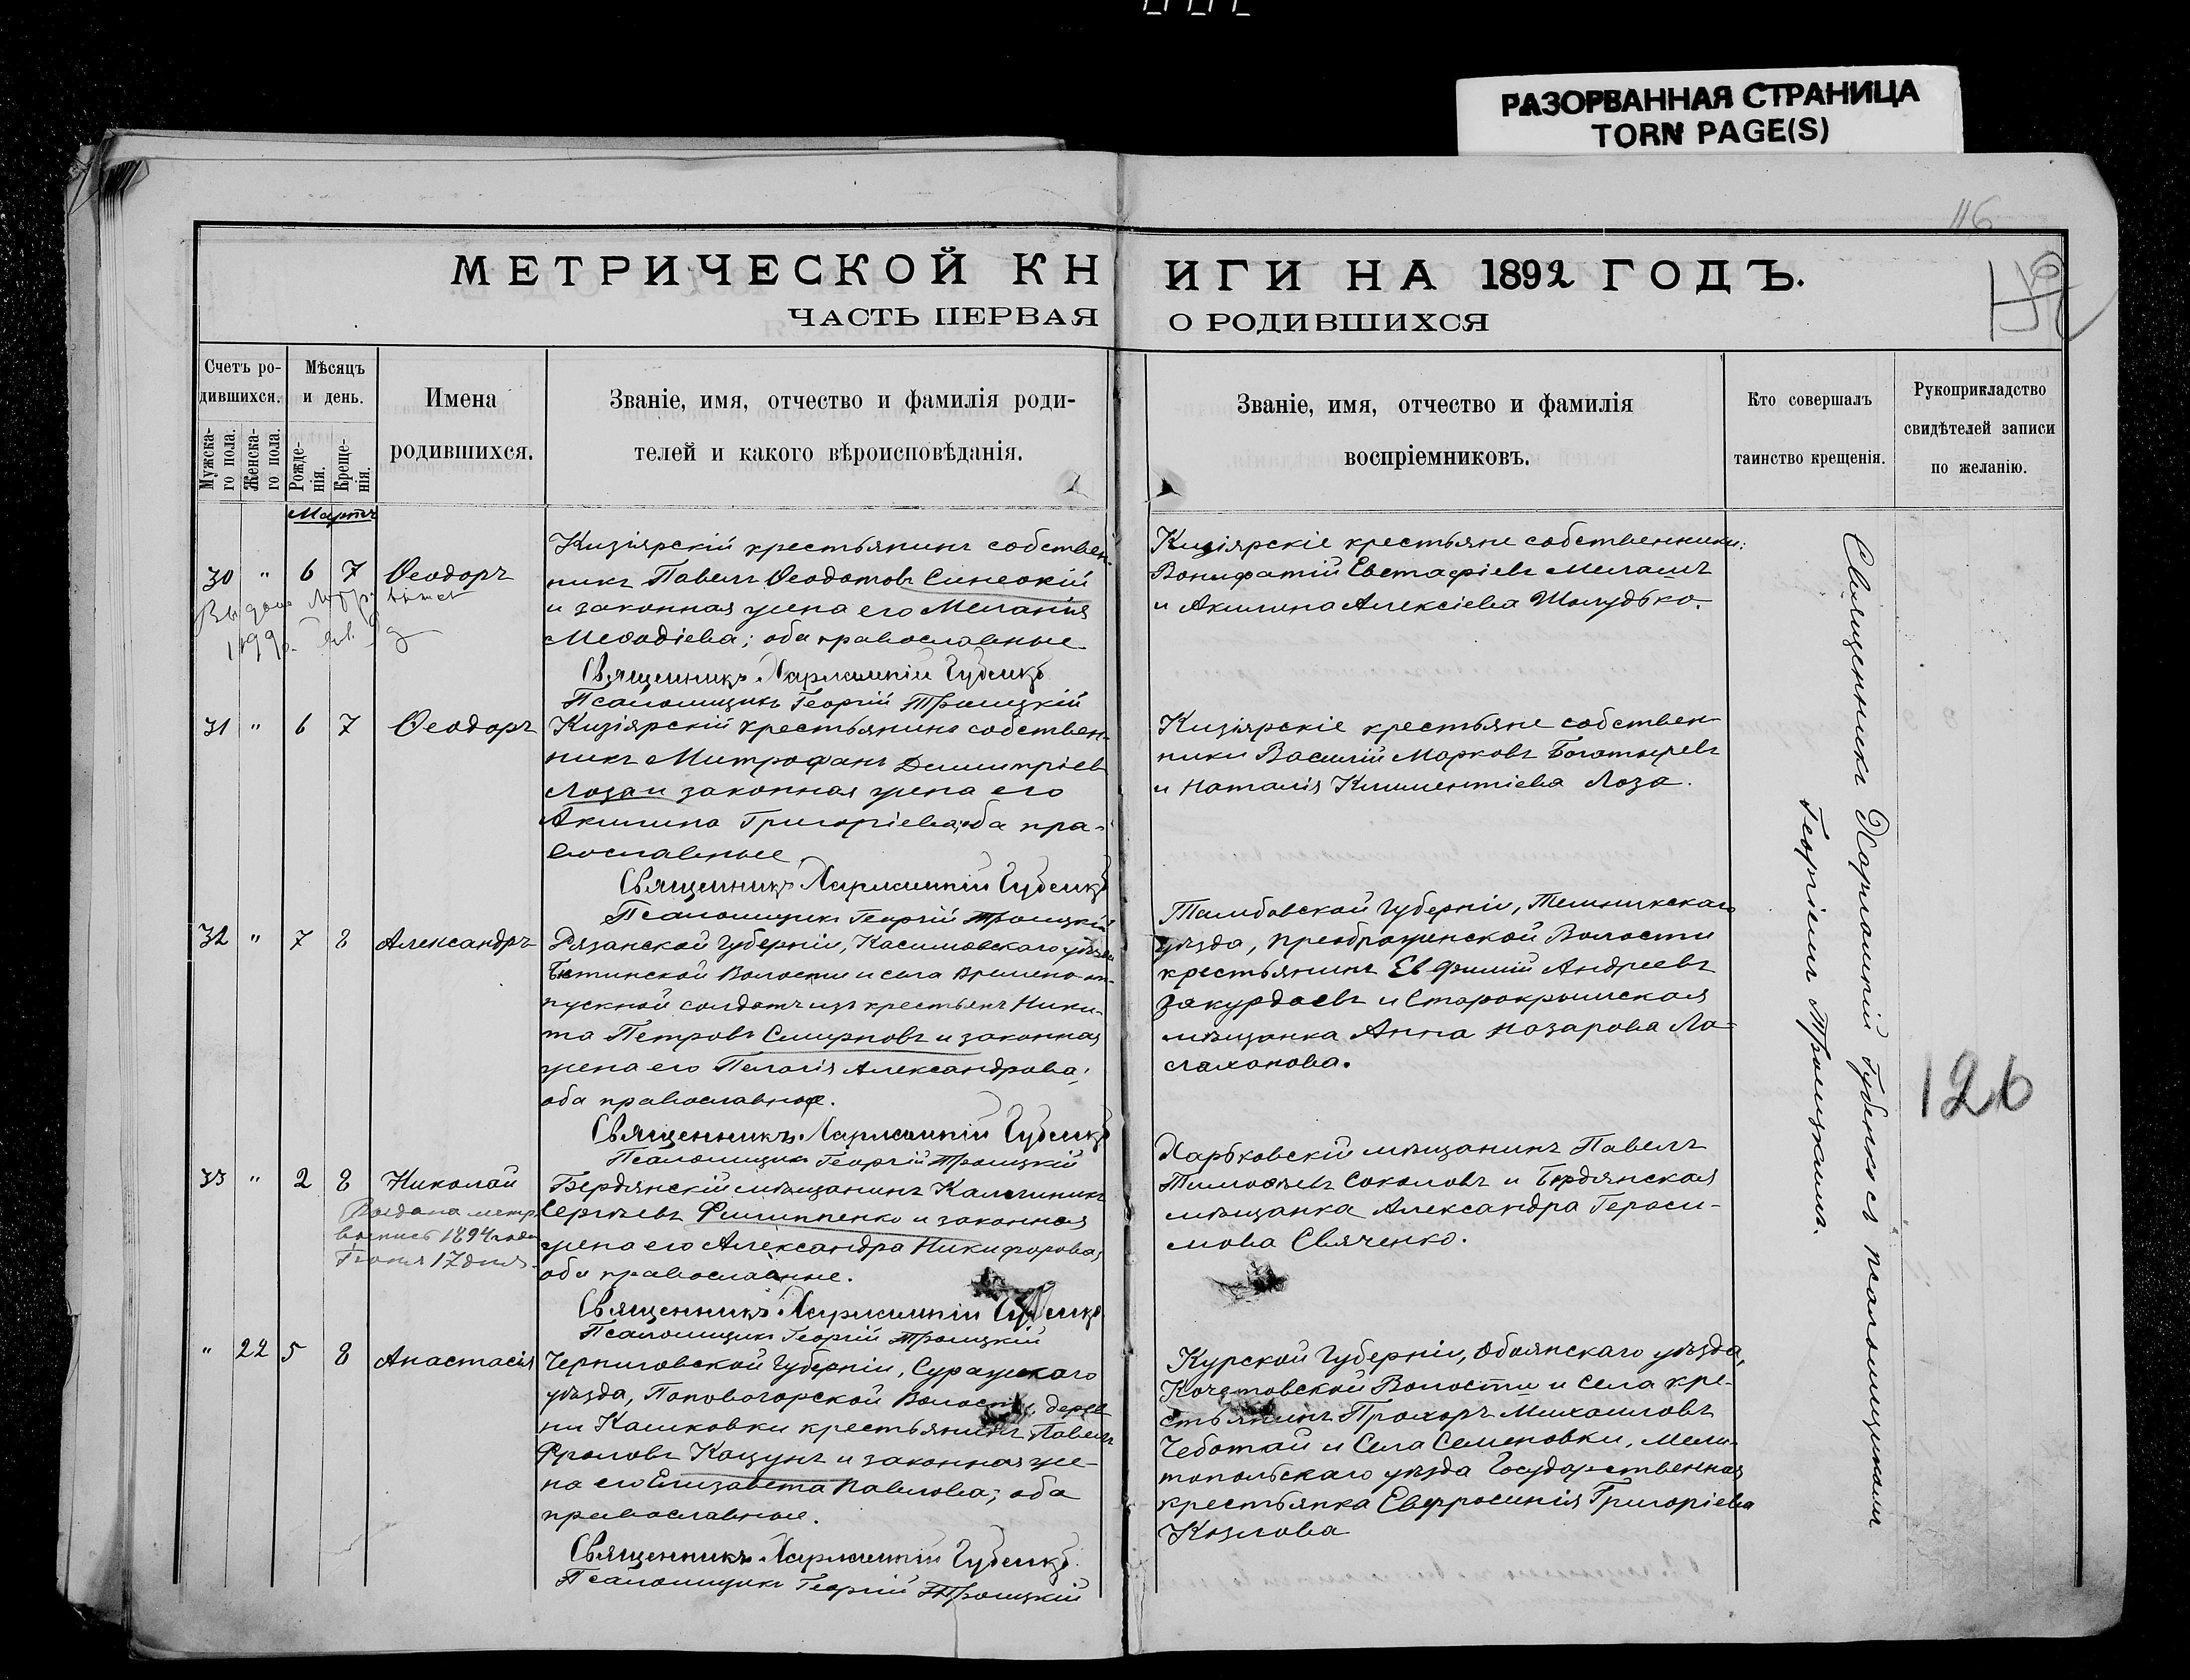 РАЗОРВАННАЯ СТРАНИЦА
TORN PAGE(S)
116
МЕТРИЧЕСКОЙ КНИГИ НА 1892 ГОДЪ.
ЧАСТЬ ПЕРВАЯ О РОДИВШИХСЯ
Счетъ ро-
дившихся.
Мужска-
го пола.
Женска-
го пола.
Мѣсяцъ
и день.
Рожде-
нія.
Креще-
нія.
Имена
родившихся.
Званіе, имя, отчество и фамилія роди-
телей и какого вѣроисповѣданія.
Званіе, имя, отчество и фамилія
воспріемниковъ.
Кто совершалъ
таинство крещенія.
Рукоприкладство
свидѣтелей записи
по желанію.
Мартъ
30 " 6 7 Ѳеодоръ
Выдана метр.
Кизіярскій крестьянинъ собствен-
никъ Павелъ Ѳеодотовъ Синеокій
и законная жена его Меланія
Меѳодіева; оба православные
Священникъ Харлампій Губенко
Псаломщикъ Георгій Троицкій
Кизіярскіе крестьяне собственники:
Вонифатій Евстафіевъ Милашъ
и Акилина Алексіева Шолудько.
31 " 6 7 Ѳеодоръ
Кизіярскій крестьянинъ собствен-
никъ Митрофанъ Димитріевъ
Лоза и законная жена его
Акилина Григоріева; оба пра-
вославные
Священникъ Харлампій Губенко
Псаломщикъ Георгій Троицкій
Кизіярскіе крестьяне собствен-
ники Василій Марковъ Богатыревъ
и Наталія Климентіева Лоза.
32 " 7 8 Александръ
Рязанской Губерніи, Касимовскаго уѣзда
Волости и села Времено-от-
пускной солдатъ изъ крестьянъ Ники-
та Петровъ Смирновъ и законная
жена его Пелагія Александрова;
оба православные.
Священникъ Харлампій Губенко
Псаломщикъ Георгій Троицкій
Тамбовской Губерніи, Темниковскаго
уѣзда, Преображенской Волости
крестьянинъ Евфимій Андреевъ
Закурдаевъ и Старокрымская
мѣщанка Анна Назарова Ла-
28
33 " 2 8 Николай
Выдана метр.
выпись 1894 года
Іюня 17 дня.
Бердянскій мѣщанинъ Калиникъ
Сергѣевъ Филиппенко и законная
жена его Александра Никифорова,
оба православные.
Священникъ Харлампій Губенко
Псаломщикъ Георгій Троицкій
Харьковскій мѣщанинъ Павелъ
Тимоѳеевъ Соколовъ и Бердянская
мѣщанка Александра Гераси-
мова Свяченко.
" 22 5 8 Анастасія
Черниговской Губерніи, Суражскаго
уѣзда, Поповогорской Волости, дерев
ни Кашковки крестьянинъ Павелъ
Фроловъ Кацунъ и законная же-
на его Елизавета Павлова; оба
православные.
Священникъ Харлампій Губенко
Псаломщикъ Георгій Троицкій
Курской Губерніи, Обоянскаго уѣзда,
Кочетовской Волости и села кре-
стьянинъ Прохоръ Михаиловъ
Чеботай и Села Семеновки, Мели-
топольскаго уѣзда Государственная
крестьянка Евфросинія Григоріева
Козлова
Священникъ Харлампій Губенко съ псаломщикомъ
Георгіемъ Троицкимъ.
126